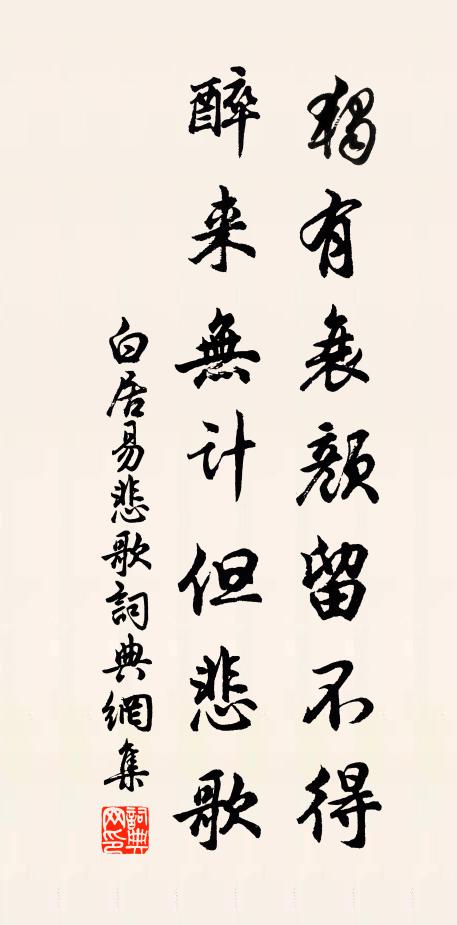 獨有衰顏留不得
醉来無计但悲歌
白居易悲歌詞典網集
詞典網印